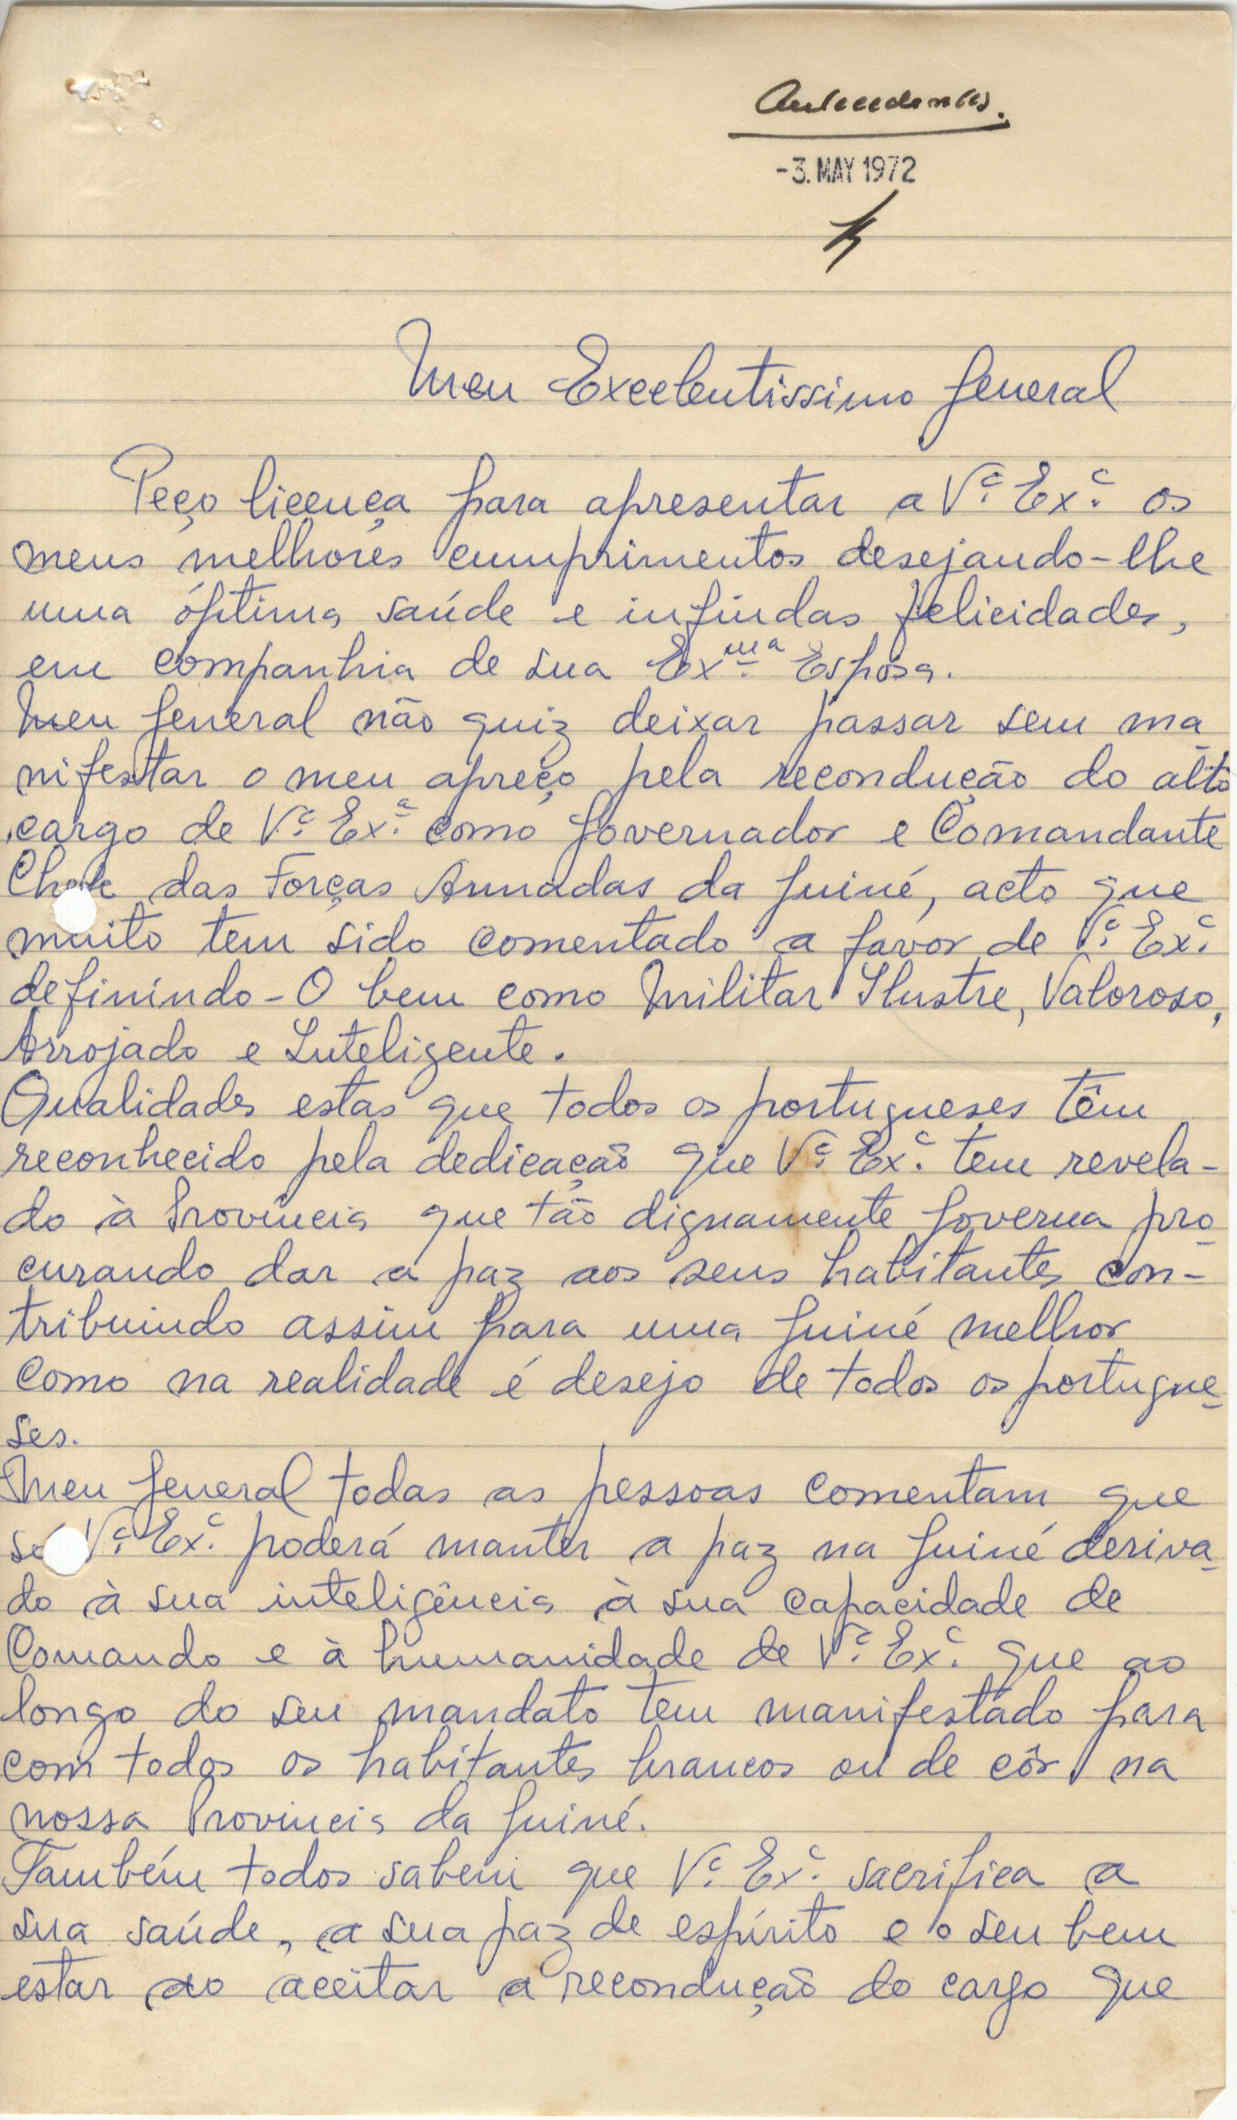 Antecedentes.
-3. MAY 1972
Meu Excelentissimo General
Peço licença para apresentar a V.ª Ex.ª os
meus melhores cumprimentos desejando-lhe
uma óptima saúde e infindas felicidades,
em companhia de sua Ex.ma Esposa.
Meu General não quiz deixar passar sem ma
nifestar o meu apreço pela recondução do alto
cargo de V.ª Ex.ª como Governador e Comandante
Chefe das Forças Armadas da Guiné, acto que
muito tem sido comentado a favor de V.ª Ex.ª
definindo-O bem como Militar Ilustre, Valoroso,
Arrojado e Inteligente.
Qualidades estas que todos os portugueses têm
reconhecido pela dedicação que V.ª Ex.ª tem revela-
do à Província que tão dignamente Governa pro
curando dar a paz aos seus habitantes con-
tribuindo assim para uma Guiné melhor
como na realidade é desejo de todos os portugue
ses.
Meu General todas as pessoas comentam que
só V.ª Ex.ª poderá manter a paz na Guiné deriva
do à sua inteligência à sua capacidade de
Comando e à humanidade de V.ª Ex.ª que ao
longo do seu mandato tem manifestado para
com todos os habitantes brancos ou de côr na
nossa Província da Guiné.
Também todos sabem que V.ª Ex.ª sacrifica a
sua saúde, a sua paz de espírito e o seu bem
estar ao aceitar a recondução do cargo que